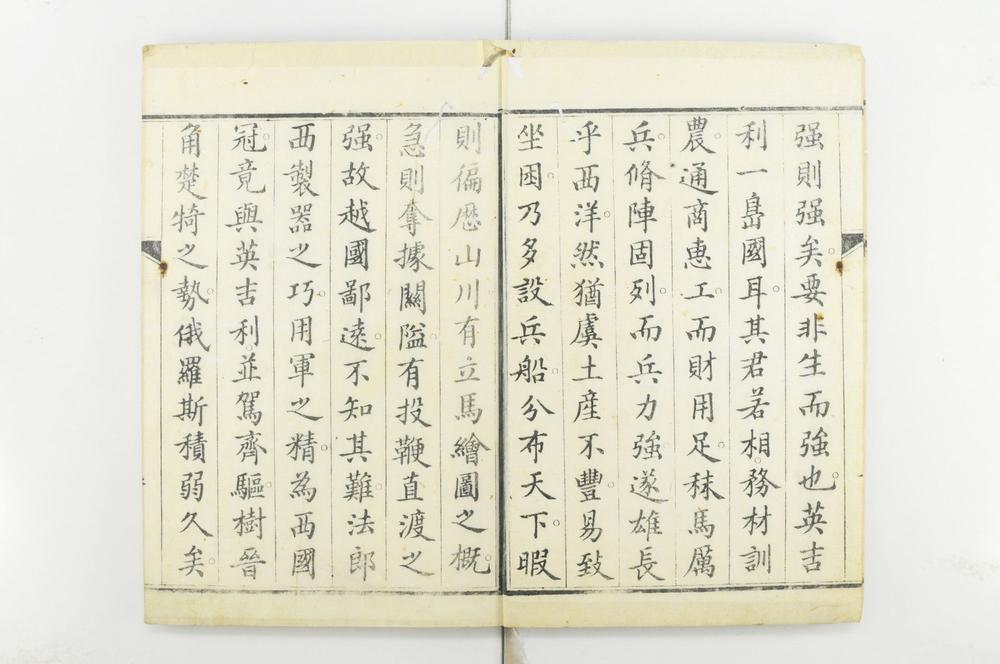 强則强矣。要非生而強也。英吉
利一島國耳。其君若相。務材訓
農。通商惠工。而財用足。秣馬厲
兵。脩陣固列。而兵力強。遂雄長
乎西洋。然猶虞土産不豐。易致
坐困。乃多設兵船。分布天下。暇
則徧歷山川有立馬繪圖之概。
急則奪據關隘。有投鞭直渡之
强。故越國鄙遠。不知其難。法郎
西製器之巧。用軍之精。為西國
冠。竟與英吉利。並駕齊驅。樹晉
角楚犄之勢。俄羅斯積弱久矣。